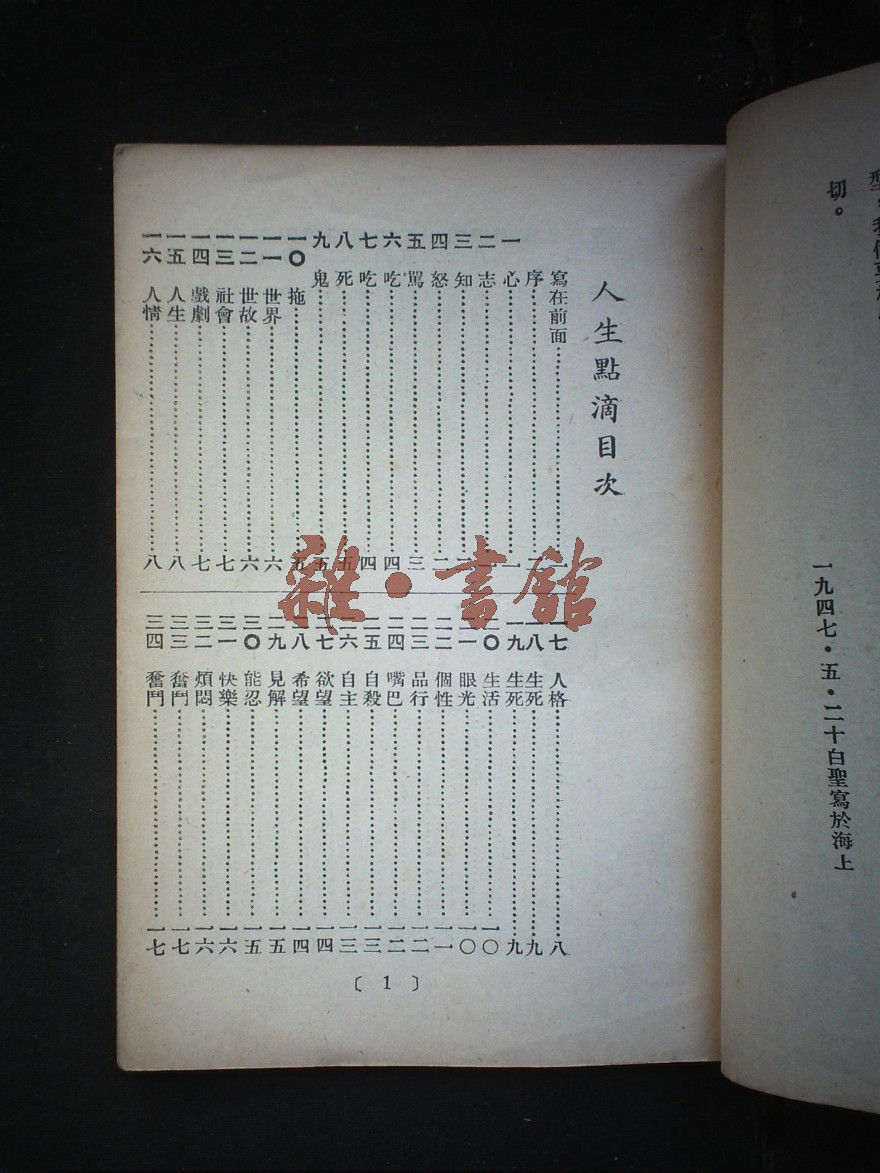 切。
一九四七・五・二十白聖寫於海上
人生點滴目次
寫在前面……一
序……二
一 心……一
二 志……一
三 知……二
四 怒……二
五 罵……三
六 吃……四
七 吃……四
八 死……五
九 鬼……五
一〇 拖……五
一一 世界……六
一二 世故……六
一三 社會……七
一四 戲劇……七
一五 人生……八
一六 人情……八
一七 人格……八
一八 生死……九
一九 生死……九
二〇 生活……一〇
二一 眼光……一〇
二二 個性……一一
二三 品行……一二
二四 嘴巴……一二
二五 自殺……一三
二六 自主……一三
二七 欲望……一四
二八 希望……一四
二九 見解……一五
三〇 能忍……一五
三一 快樂……一六
三二 煩悶……一六
三三 奮鬥……一七
三四 奮鬥……一七
〔1〕
雜・書館